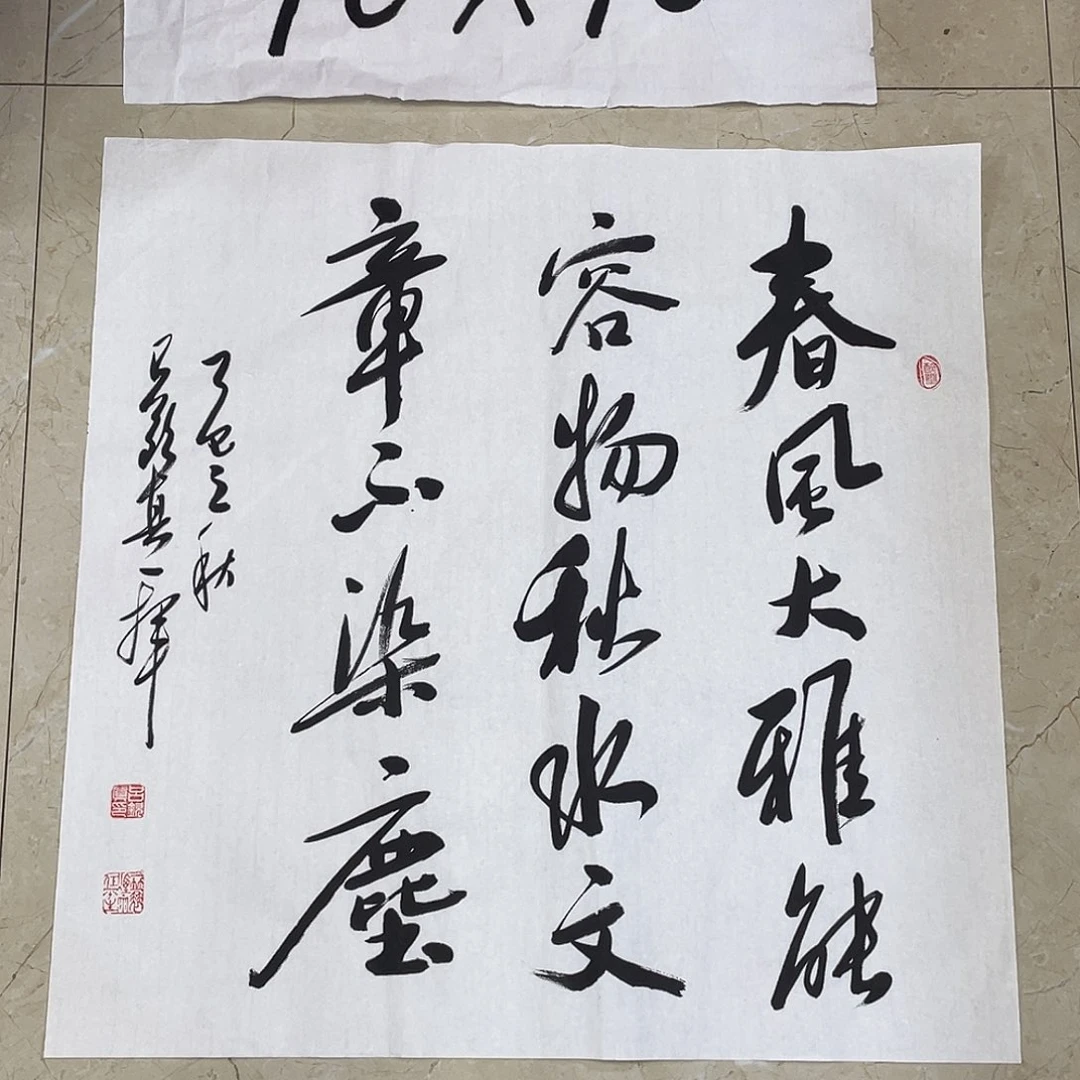 春風大雅能
容物秋水文
章不染塵
乙巳之秋
真一揮